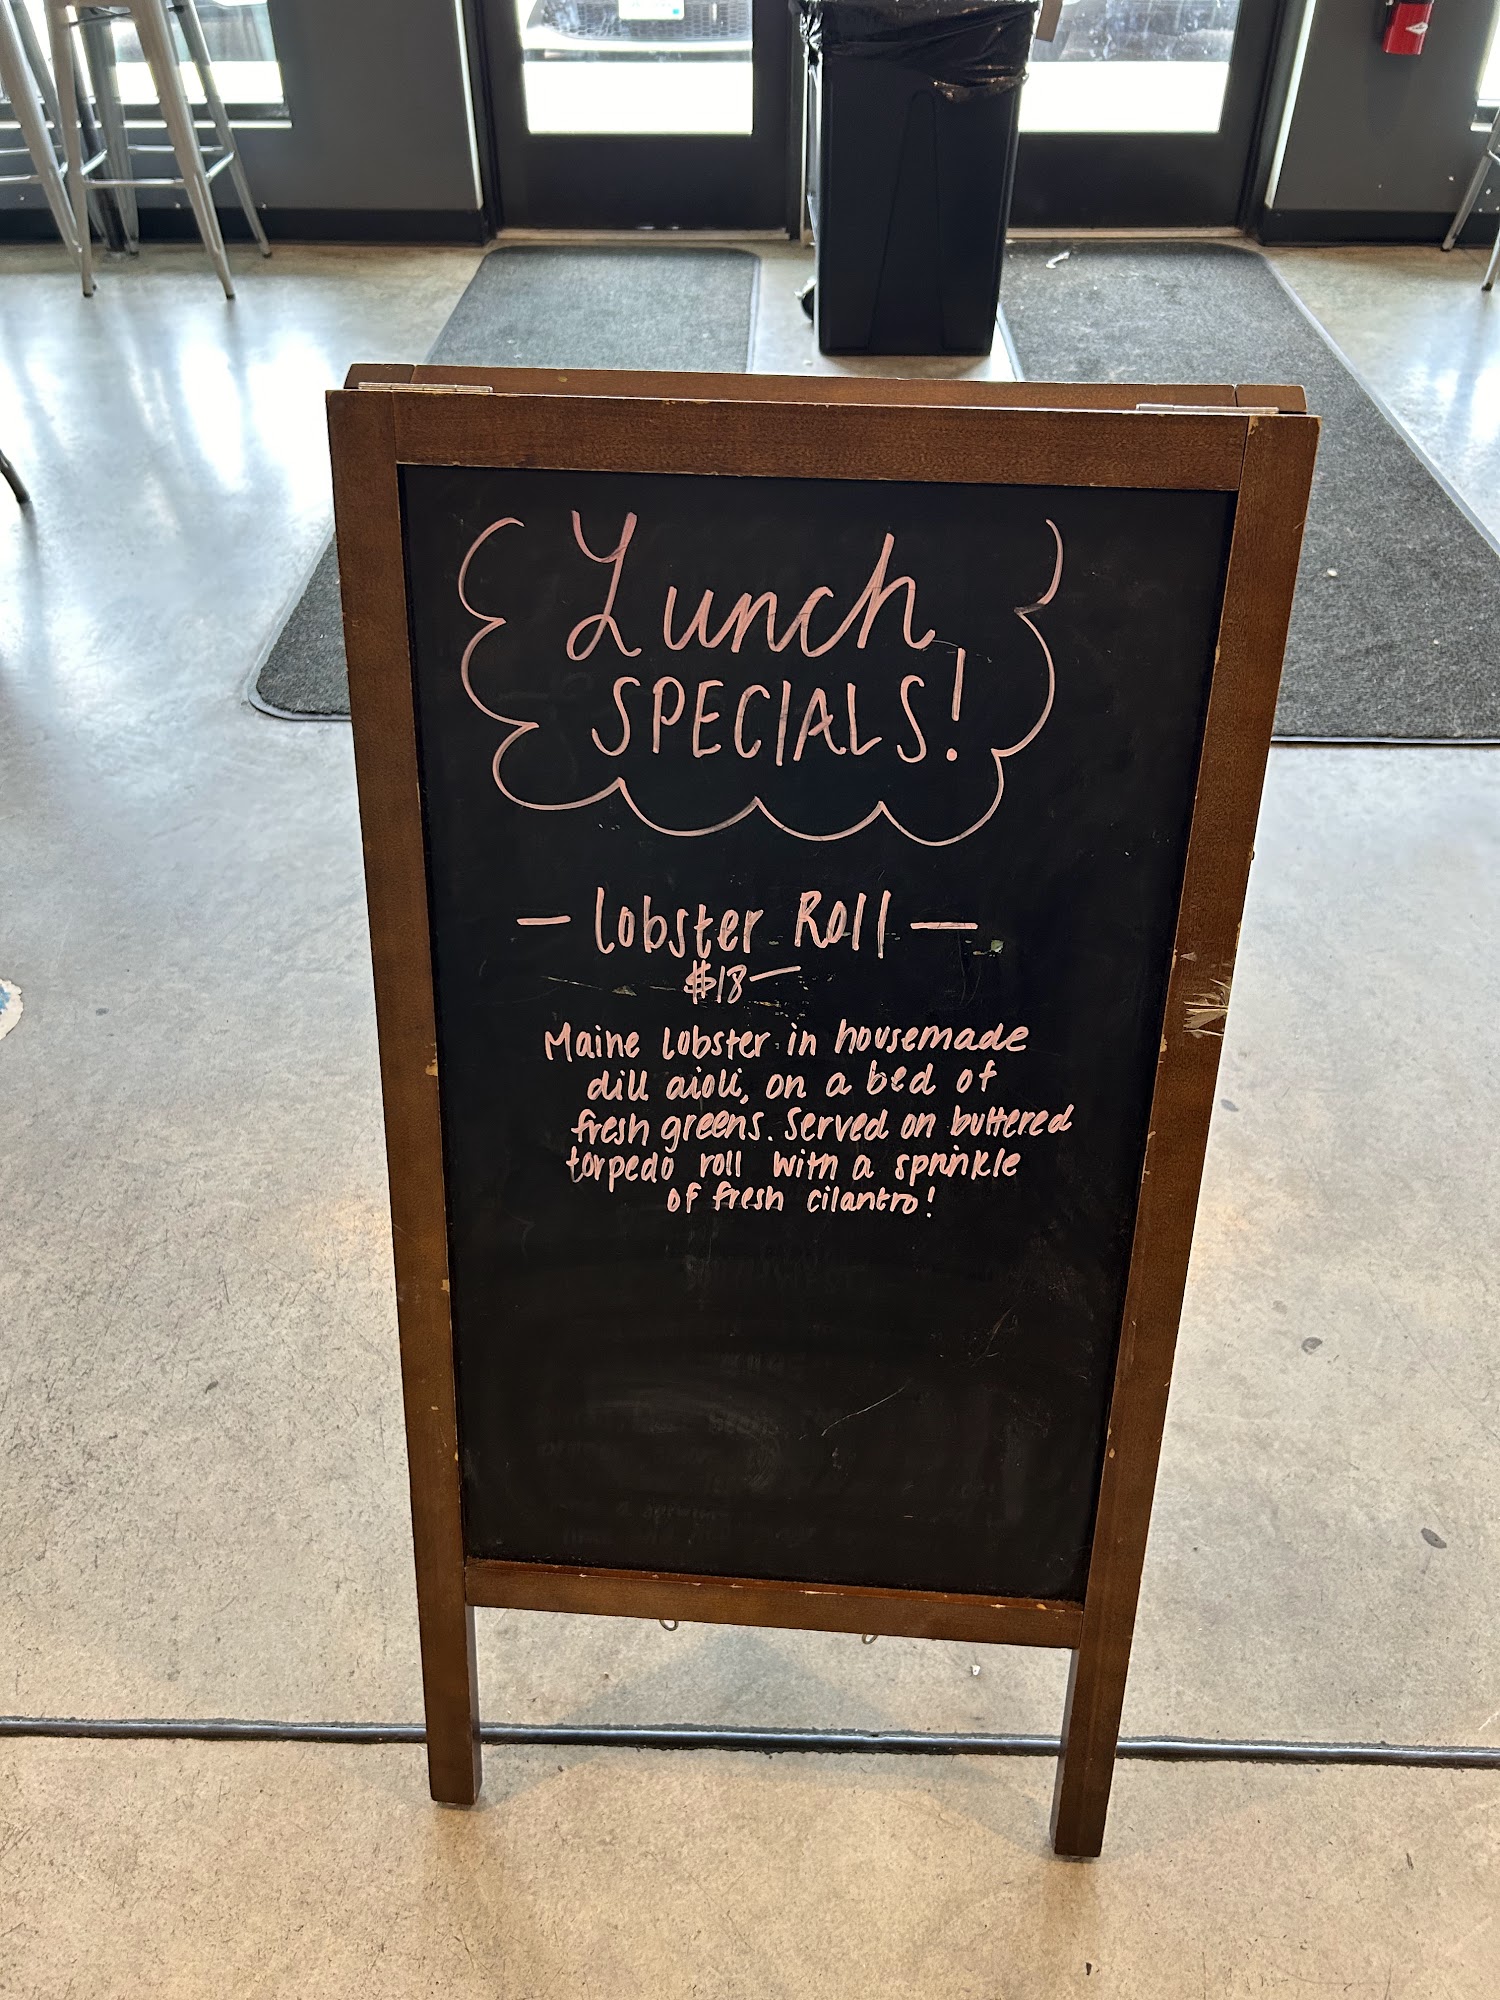 Lunch
SPECIALS!
— Lobster Roll —
$18—
Maine Lobster in housemade
dill aioli, on a bed of
fresh greens. Served on buttered
torpedo roll with a sprinkle
of fresh cilantro!